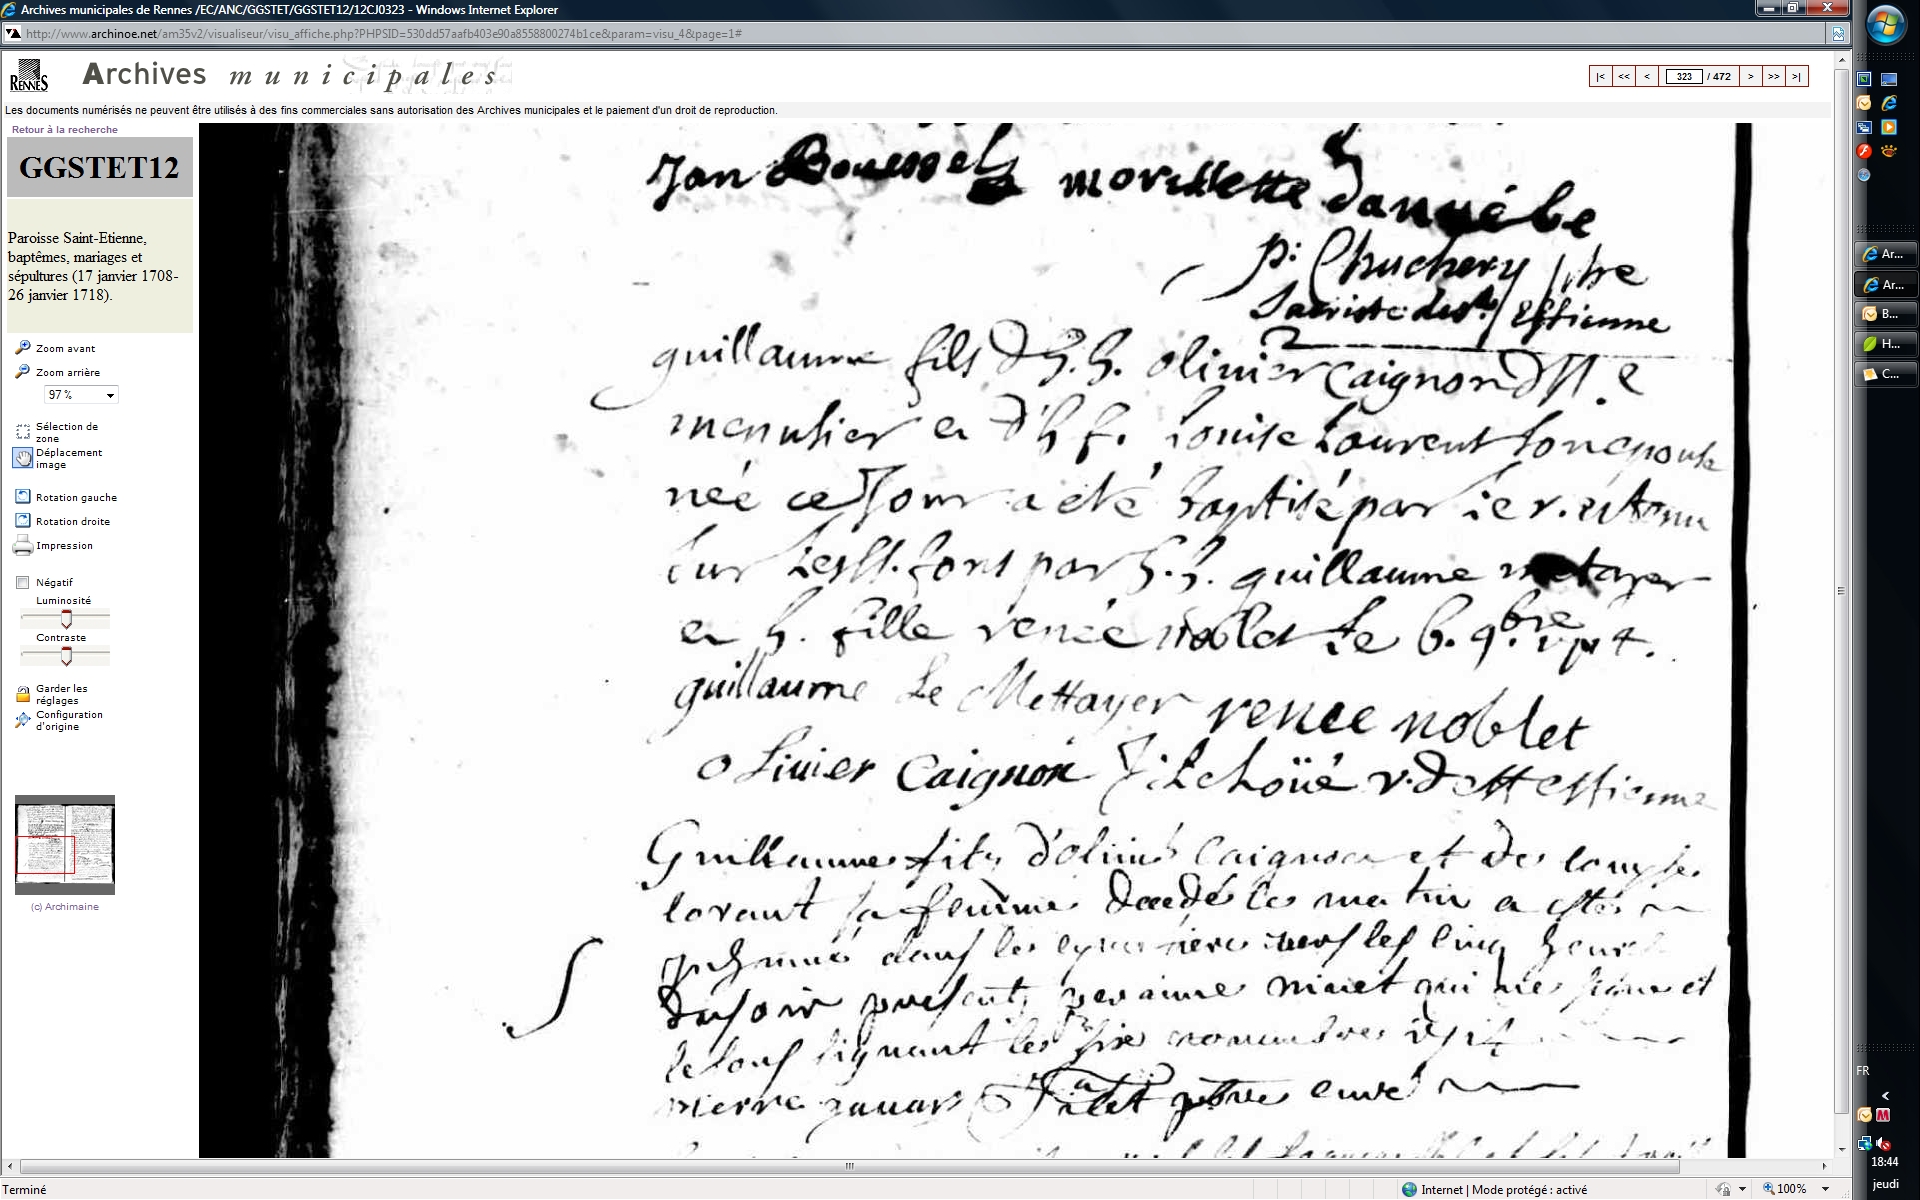 Archives municipales de Rennes /EC/ANC/GGSTET/GGSTET12/12CJ0323 - Windows Internet Explorer
http://www.archinoe.net/am35v2/visualiseur/visu_affiche.php?PHPSID=530dd57aafb403e90a8558800274b1ce&param=visu_4&page=1#
RENNES Archives municipales
|< << < 323 / 472 > >> >|
Les documents numérisés ne peuvent être utilisés à des fins commerciales sans autorisation des Archives municipales et le paiement d'un droit de reproduction.
Retour à la recherche
GGSTET12
Paroisse Saint-Etienne,
baptêmes, mariages et
sépultures (17 janvier 1708-
26 janvier 1718).
Zoom avant
Zoom arrière
97 %
Sélection de
zone
Déplacement
image
Rotation gauche
Rotation droite
Impression
Négatif
Luminosité
Contraste
Garder les
réglages
Configuration
d'origine
(c) Archimaine
Jan Bouessel
p: Chuchery
Estienne
guillaume fils d'h. h. olivier Caignon
menusier et d'h f. Louise Laurent son epouse
née ce Jour a eté baptisé par
sur les st. fons par h. h. guillaume metayer
et h. fille renée noblet Le 6. 9.bre
guillaume Le Mettayer renee noblet
olivier Caignon Estienne
Guillaume fils d'olivier Caignon et de
lorant sa femme decedé ce matin a esté
inhumé dans le cymetiere vers les cinq heures
du soir present perainne qui ne signe et
le sousignant le six novambre
pierre prtre curé
Ar...
Ar...
B...
H...
C...
FR
18:44
jeudi
Terminé
Internet | Mode protégé : activé
100%